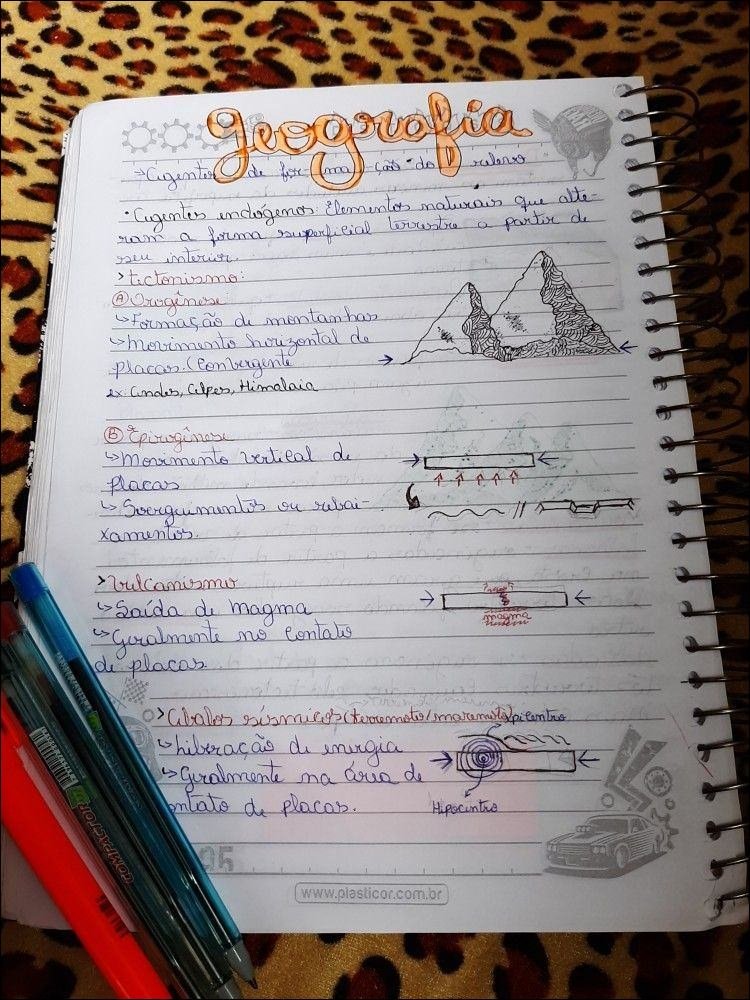 Geografia
→Agentes de for ma ção do relevo
• Agentes endógenos: Elementos naturais que alte-
ram a forma superficial terrestre a partir de
seu interior.
> tectonismo:
Ⓐ Orogênese
↳ Formação de montanhas
↳ Movimento horizontal de
placas.(Convergente
ex: Andes, Alpes, Himalaia
Ⓑ Epirogênese
↳ Movimento vertical de
placas
↳ Soerguimentos ou rebai-
xamentos.
> Vulcanismo
↳ Saída de magma
↳ Geralmente no contato
de placas
magma
> Abalos sísmicos (terremoto/maremoto)
epicentro
↳ liberação de energia
↳ Geralmente na área de
ontato de placas.
Hipocentro
www.plasticor.com.br
COMPACTOR